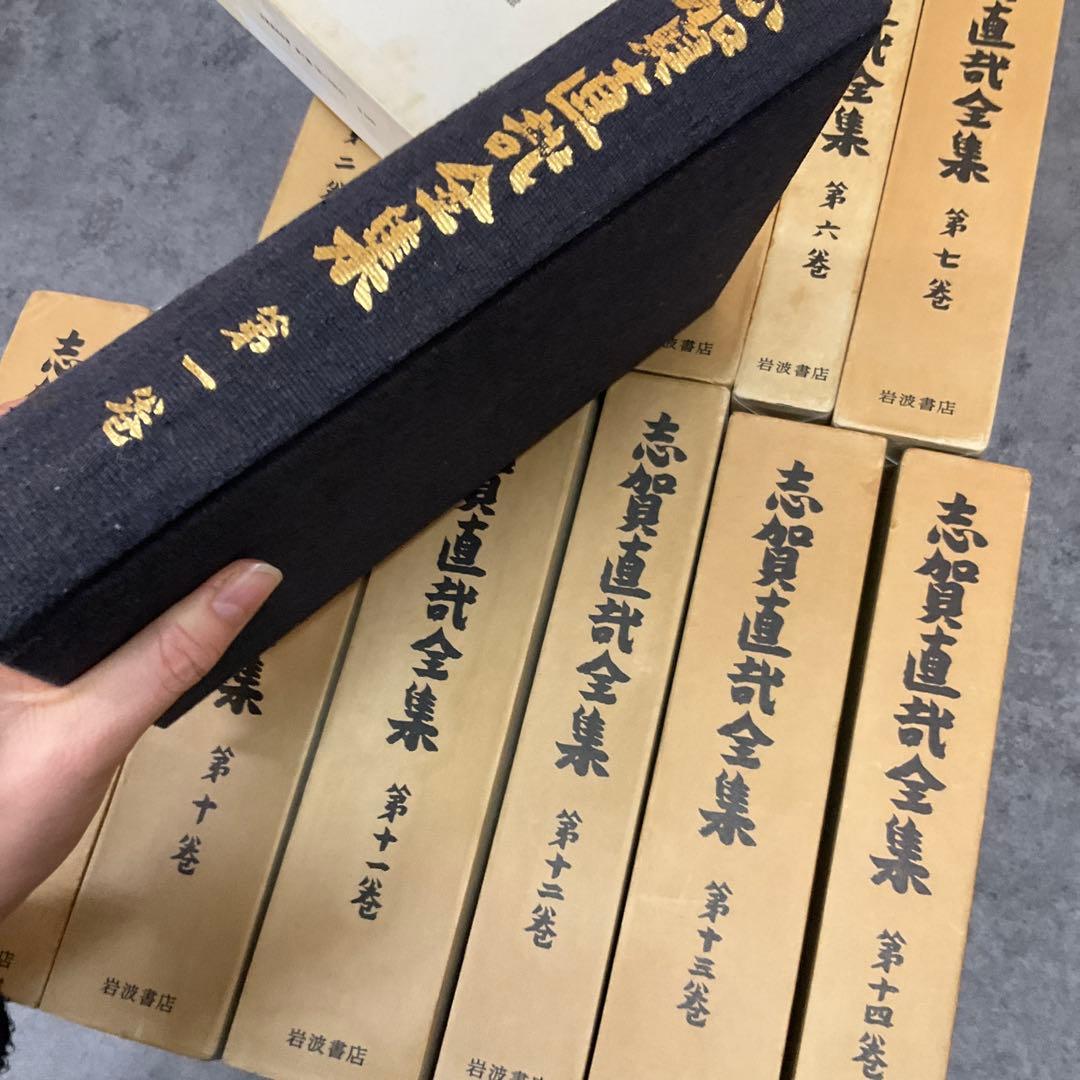 志賀直哉全集
第一巻
第二巻
直哉全集
第六巻
岩波書店
直哉全集
第七巻
岩波書店
岩波書店
志
集
第十巻
岩波書店
賀直哉全集
第十一巻
岩波書店
志賀直哉全集
第十二巻
岩波書店
志賀直哉全集
第十三巻
志賀直哉全集
第十四巻